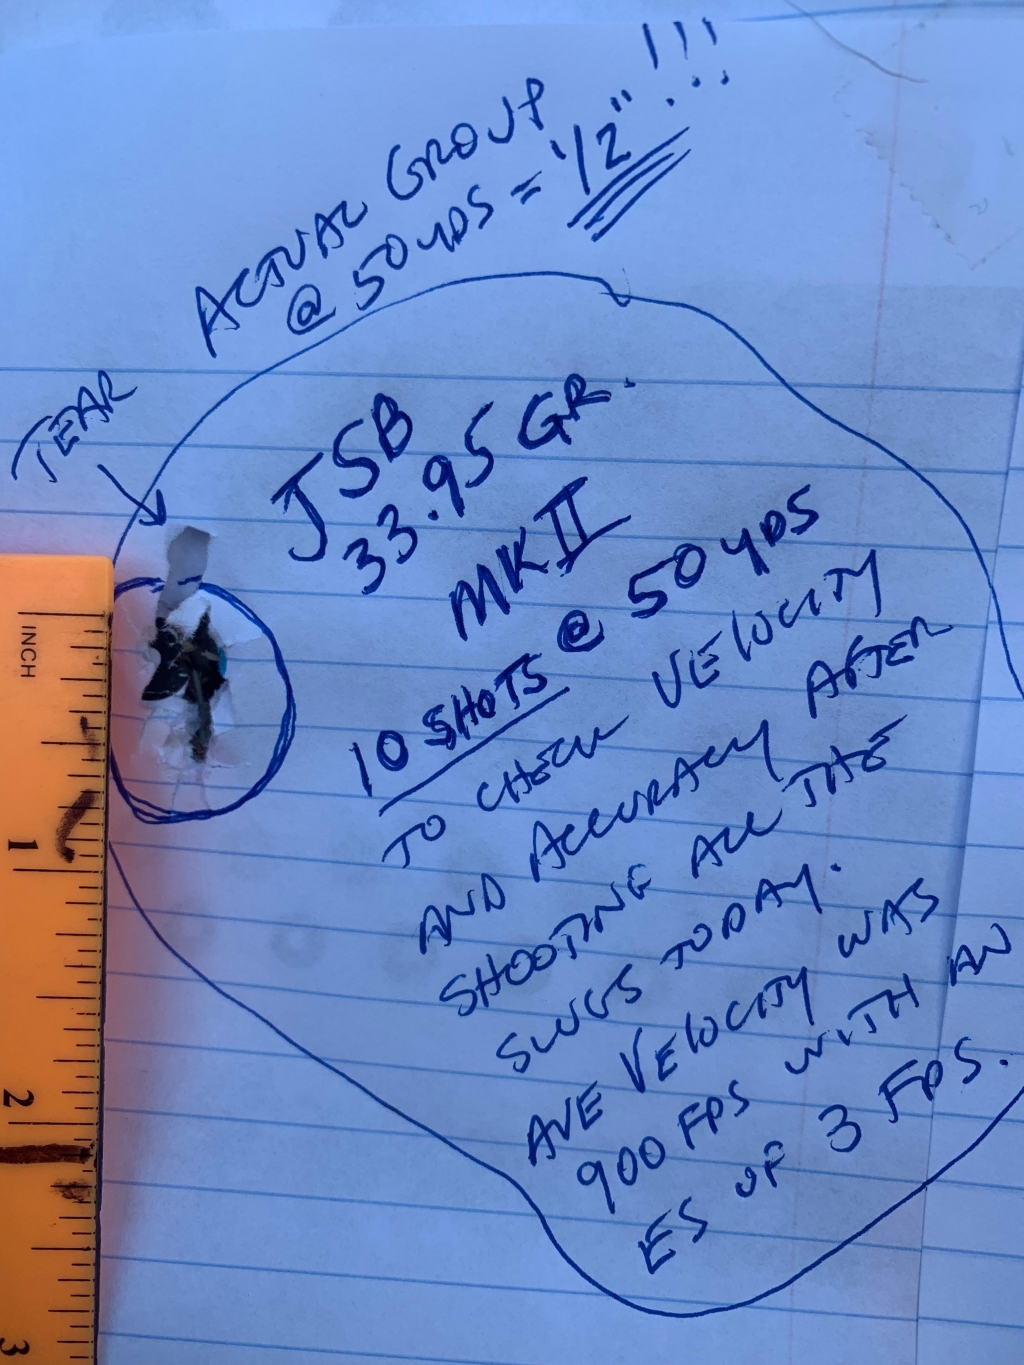 ACTUAL GROUP
@ 50 YDS = 1/2" !!!
TEAR
JSB
33.95 GR.
MK II
10 SHOTS @ 50 YDS
TO CHECK VELOCITY
AND ACCURACY AFTER
SHOOTING ALL THE
SLUGS TODAY.
AVE VELOCITY WAS
900 FPS WITH AN
ES OF 3 FPS.
INCH
1
2
3